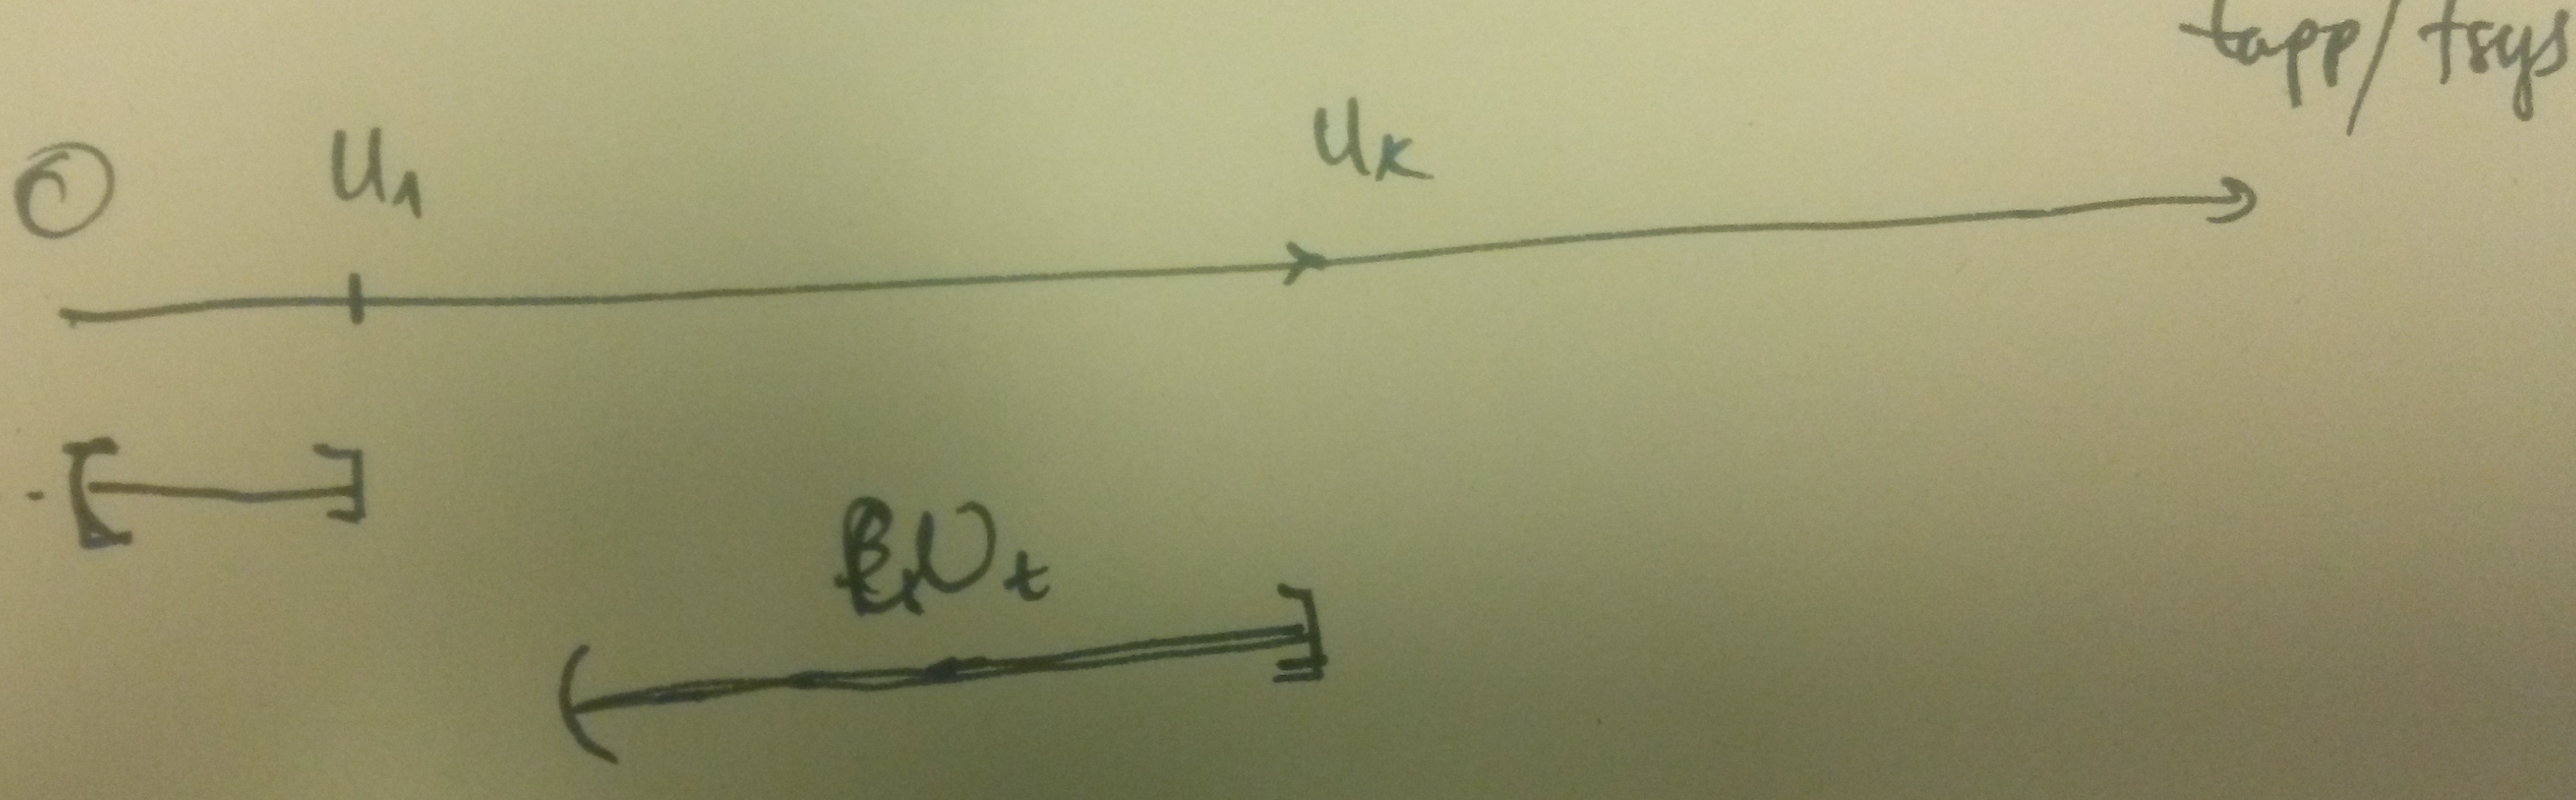 tapp/tsys
0 U1 Uk
[ ]
Ut
( ]